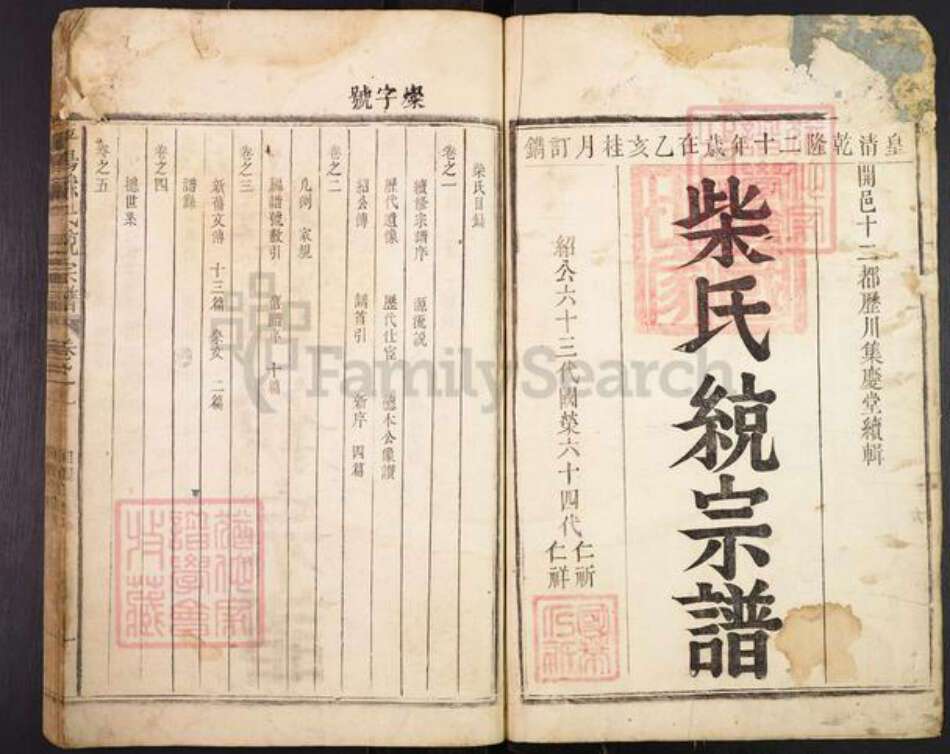 皇清乾隆二十年歲在乙亥桂月訂鐫
開邑十二都歷川集慶堂續輯
柴氏統宗譜
紹公六十三代國榮六十四代仁祈
仁祥
燦字號
柴氏目錄
卷之一
續修宗譜序 源流說
歷代遺像 歷代仕宦
紹公傳 新序 四篇
卷之二
凡例 家規
編譜號數引 十篇
卷之三
新舊文傳 十三篇 二篇
卷之四
總世系
卷之五
FamilySearch